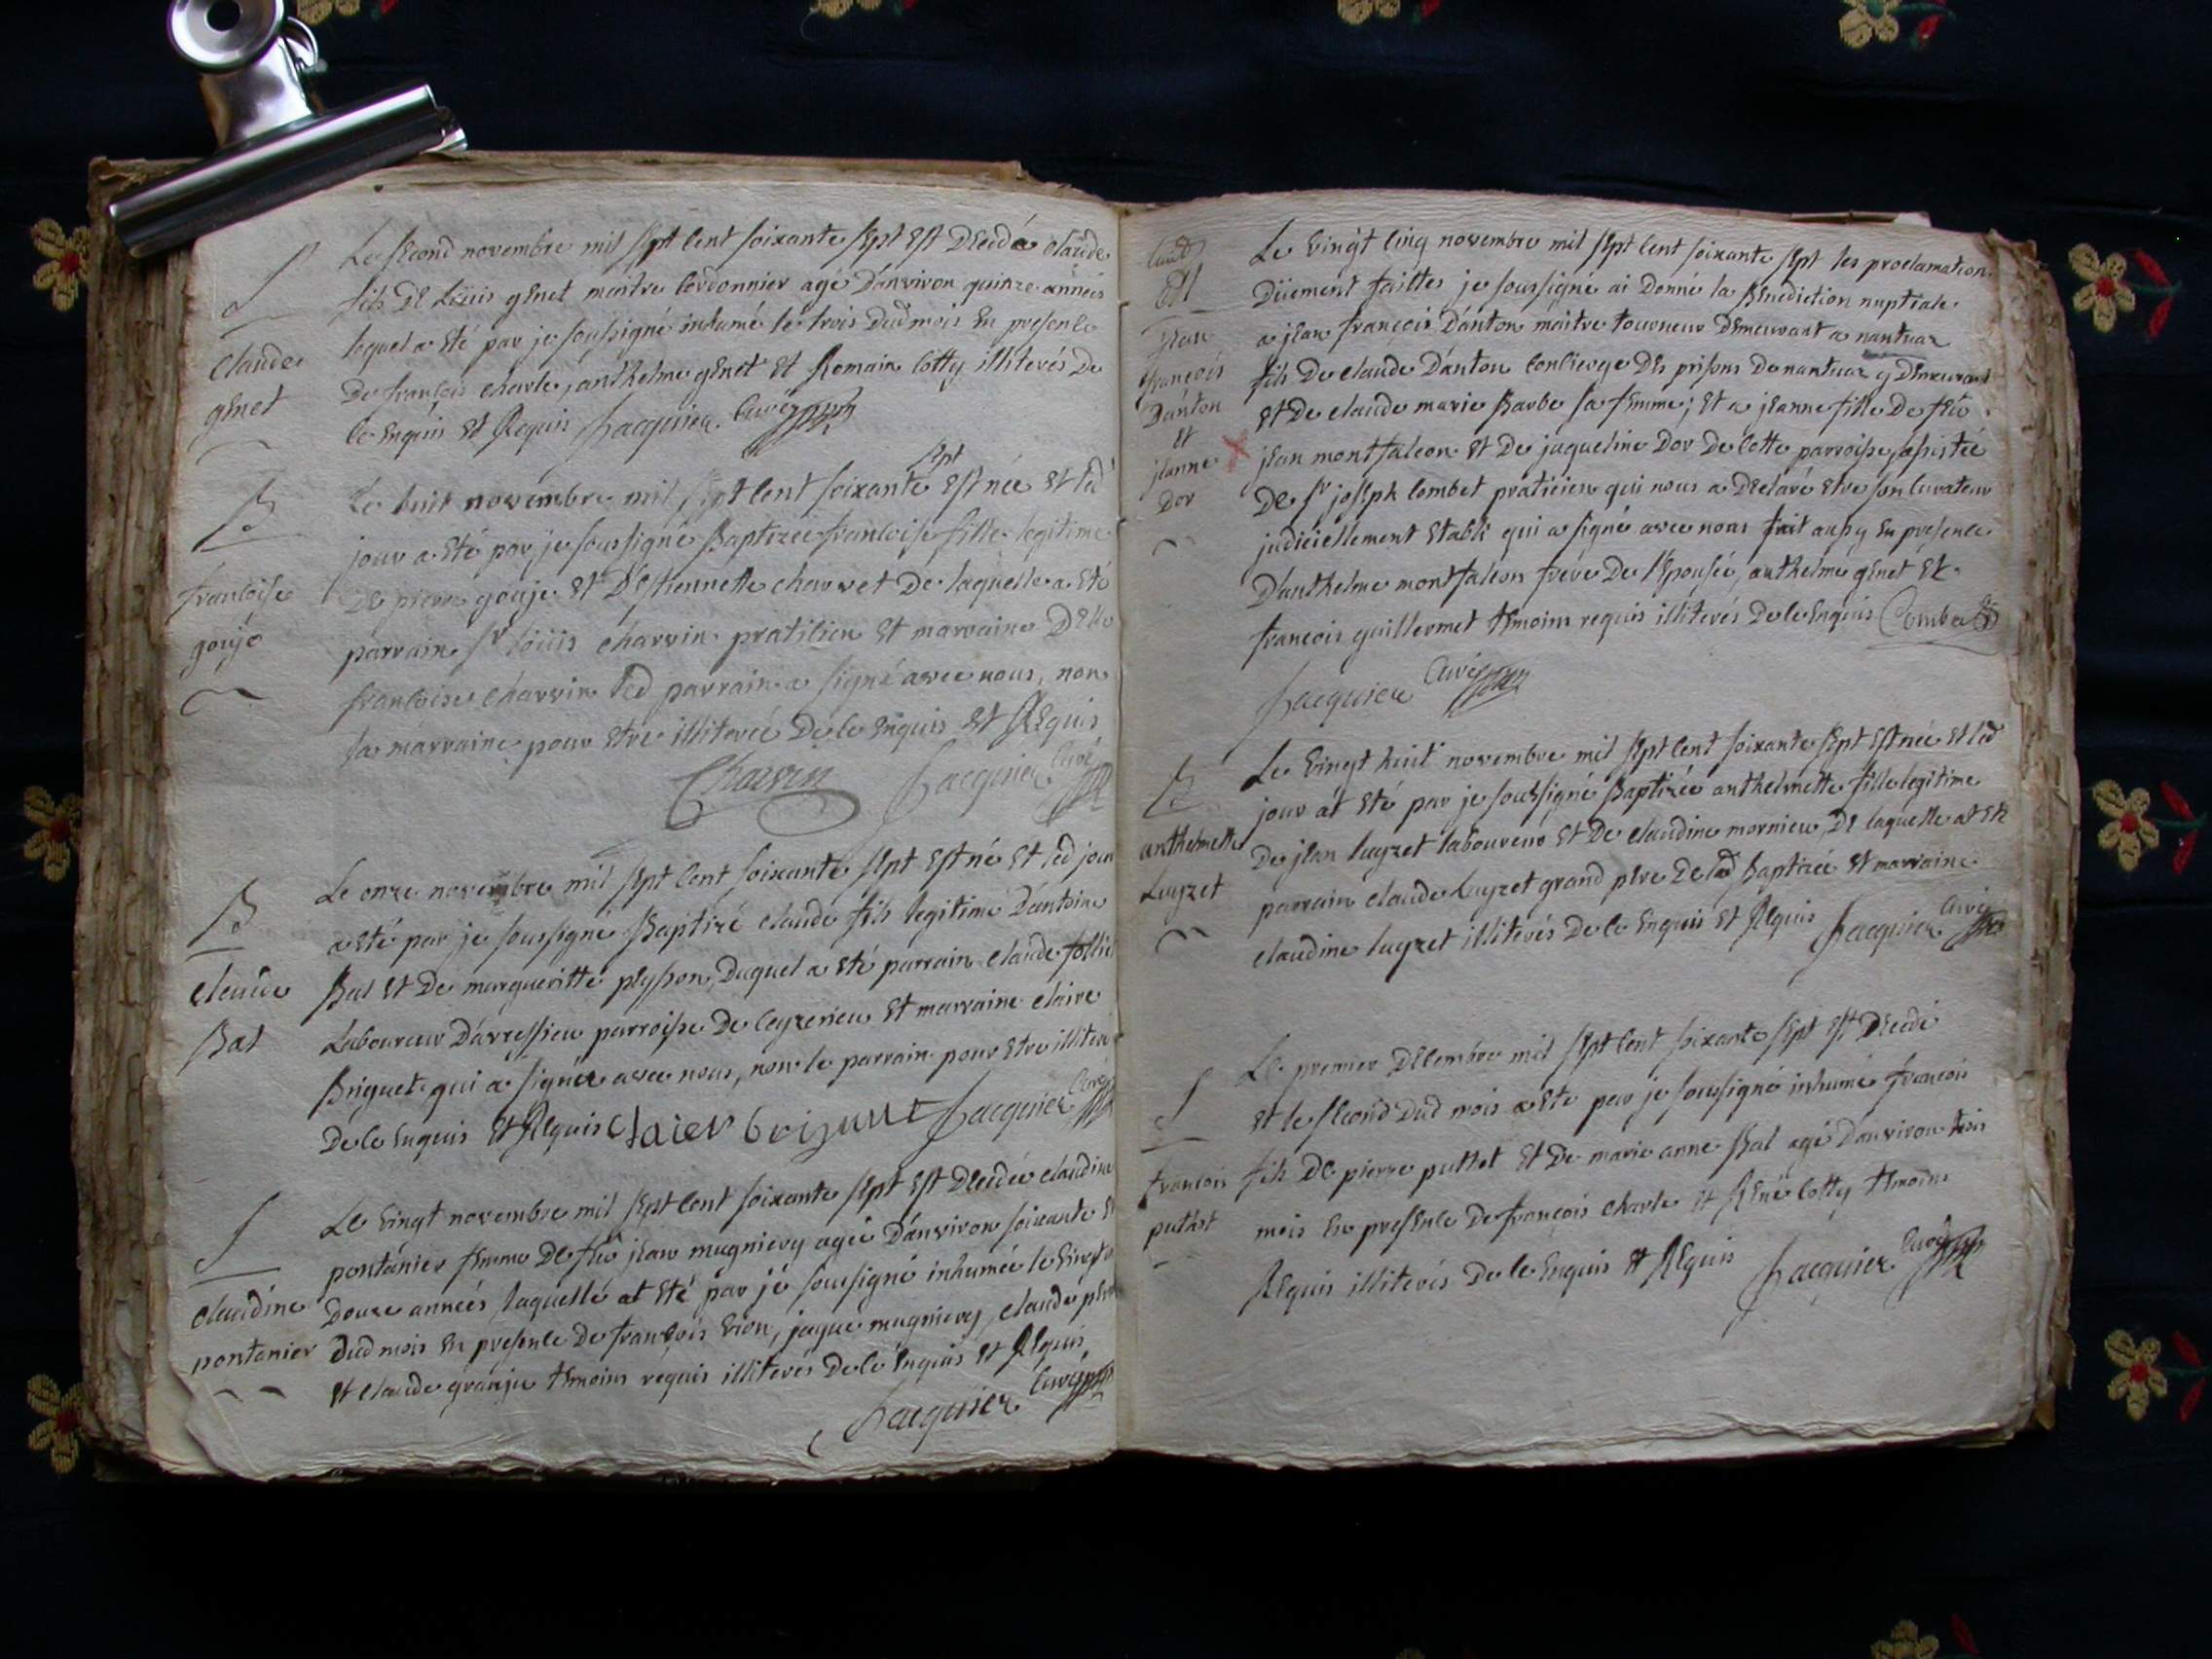 S
claude
genet
Le second novembre mil sept cent soixante sept est decedé claude
fils de Loüis genet maitre cordonnier agé d'anviron quinze années
lequel a eté par je soussigné inhumé le trois dud mois en presence
de françois charle, anthelme genet et Romain cotty illiterés de
ce enquis et Requis Jacquier curé
B
francoise
gouje
Le huit novembre mil sept cent soixante sept est née et led
jour a eté par je soussigné Baptizée francoise fille legitime
de pierre gouje et d'estiennette charvet de laquelle a eté
parrain Sr loüis charvin praticien et marraine delle
francoise charvin led parrain a signé avec nous, non
la marraine pour etre illiterée de ce enquis et Requis
Charvin Jacquier curé
B
claude
Bal
Le onze novembre mil sept cent soixante sept est né et led jour
a eté par je soussigné Baptizé claude fils legitime d'antoine
Bal et de margueritte plysson, duquel a eté parrain claude
Laboureur d'avressieu parroisse de ceyzerieu et marraine claire
Briguet qui a signée avec nous, non le parrain pour etre illiteré
de ce enquis et Requis claier Jacquier curé
S
claudine
pontanier
Le vingt novembre mil sept cent soixante sept est decedée claudine
pontanier femme de feû jean mugniery agée d'anviron soixante et
douze années laquelle at eté par je soussigné inhumée le vingt
dud mois en presence de françois jaque mugniery, claude
et claude granje temoins requis illiterés de ce enquis et Requis
Jacquier curé
Jean
françois
Danton
et
jeanne
Dor
Le vingt cinq novembre mil sept cent soixante sept les proclamations
düement faittes je soussigné ai donné la Benediction nuptiale
a jean françois Danton maitre tourneur demeurant a nantuaz
fils de claude Danton concierge des prisons de nantuaz y demeurant
et de claude marie Barbe sa femme; et a jeanne fille de feû
jean montfalcon et de jaqueline Dor de cette parroisse, assistée
de Sr joseph Combet praticien qui nous a declaré etre son curateur
judiciellement etabli qui a signé avec nous fait aussy en presence
d'anthelme montfalcon frere de l'epousée, anthelme genet et
francois guillermet temoins requis illiterés de ce enquis Combet
Jacquier curé
B
anthelmette
Luyzet
Le vingt huit novembre mil sept cent soixante sept est née et led
jour at eté par je soussigné Baptizée anthelmette fille legitime
de jean luyzet laboureur et de claudine mornieu, de laquelle at eté
parrain claude Luyzet grand pere de lad Baptizée et marraine
claudine luyzet illiterés de ce enquis et Requis Jacquier curé
S
francois
putet
Le premier decembre mil sept cent soixante sept est decedé
et le second dud mois a eté par je soussigné inhumé françois
fils de pierre puttet et de marie anne Bal agé d'anviron trois
mois en presence de françois charle et René cotty temoins
Requis illiterés de ce enquis et Requis Jacquier curé